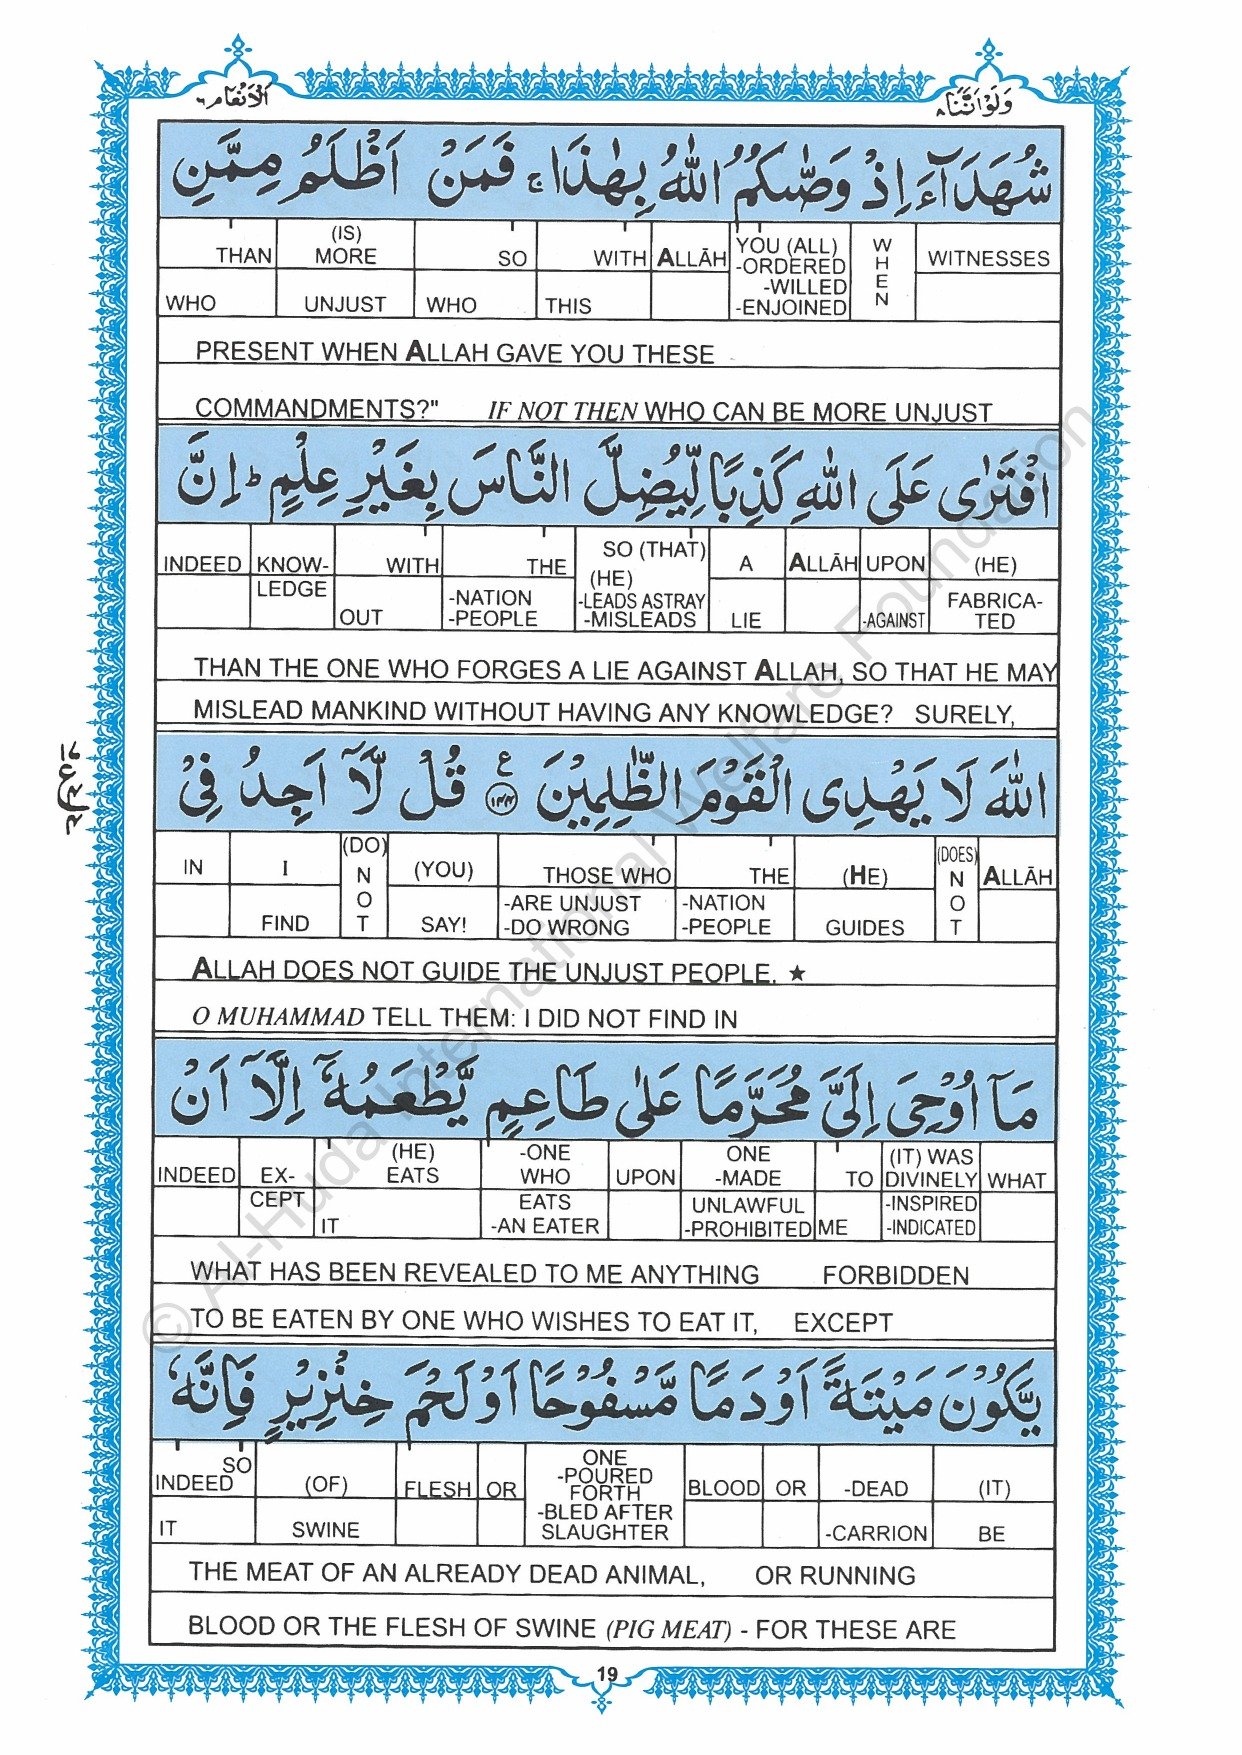 الانعام ٦
ولواننا ٨
شُهَدَآءَ اِذْ وَصّٰىكُمُ اللّٰهُ بِهٰذَا ۚ فَمَنْ اَظْلَمُ مِمَّنِ
THAN (IS) MORE SO WITH ALLĀH YOU (ALL) -ORDERED -WILLED -ENJOINED WHEN WITNESSES
WHO UNJUST WHO THIS
PRESENT WHEN ALLAH GAVE YOU THESE
COMMANDMENTS?" IF NOT THEN WHO CAN BE MORE UNJUST
افْتَرٰى عَلَى اللّٰهِ كَذِبًا لِّيُضِلَّ النَّاسَ بِغَيْرِ عِلْمٍ ؕ اِنَّ
INDEED KNOW- WITH THE SO (THAT) A ALLĀH UPON (HE)
LEDGE OUT -NATION -PEOPLE (HE) -LEADS ASTRAY -MISLEADS LIE -AGAINST FABRICA- TED
THAN THE ONE WHO FORGES A LIE AGAINST ALLAH, SO THAT HE MAY
MISLEAD MANKIND WITHOUT HAVING ANY KNOWLEDGE? SURELY,
اللّٰهَ لَا يَهْدِى الْقَوْمَ الظّٰلِمِيْنَ ١٤٤ ع قُلْ لَّآ اَجِدُ فِىْ
IN I (DO) NOT (YOU) THOSE WHO THE (HE) (DOES) NOT ALLĀH
FIND SAY! -ARE UNJUST -DO WRONG -NATION -PEOPLE GUIDES
ALLAH DOES NOT GUIDE THE UNJUST PEOPLE. ★
O MUHAMMAD TELL THEM: I DID NOT FIND IN
مَآ اُوْحِىَ اِلَىَّ مُحَرَّمًا عَلٰى طَاعِمٍ يَّطْعَمُهٗٓ اِلَّآ اَنْ
INDEED EX- (HE) EATS -ONE WHO UPON ONE -MADE TO (IT) WAS DIVINELY WHAT
CEPT IT EATS -AN EATER UNLAWFUL -PROHIBITED ME -INSPIRED -INDICATED
WHAT HAS BEEN REVEALED TO ME ANYTHING FORBIDDEN
TO BE EATEN BY ONE WHO WISHES TO EAT IT, EXCEPT
يَّكُوْنَ مَيْتَةً اَوْ دَمًا مَّسْفُوْحًا اَوْ لَحْمَ خِنْزِيْرٍ فَاِنَّهٗ
SO INDEED (OF) FLESH OR ONE -POURED FORTH -BLED AFTER SLAUGHTER BLOOD OR -DEAD (IT)
IT SWINE -CARRION BE
THE MEAT OF AN ALREADY DEAD ANIMAL, OR RUNNING
BLOOD OR THE FLESH OF SWINE (PIG MEAT) - FOR THESE ARE
19
© Al-Huda International Welfare Foundation